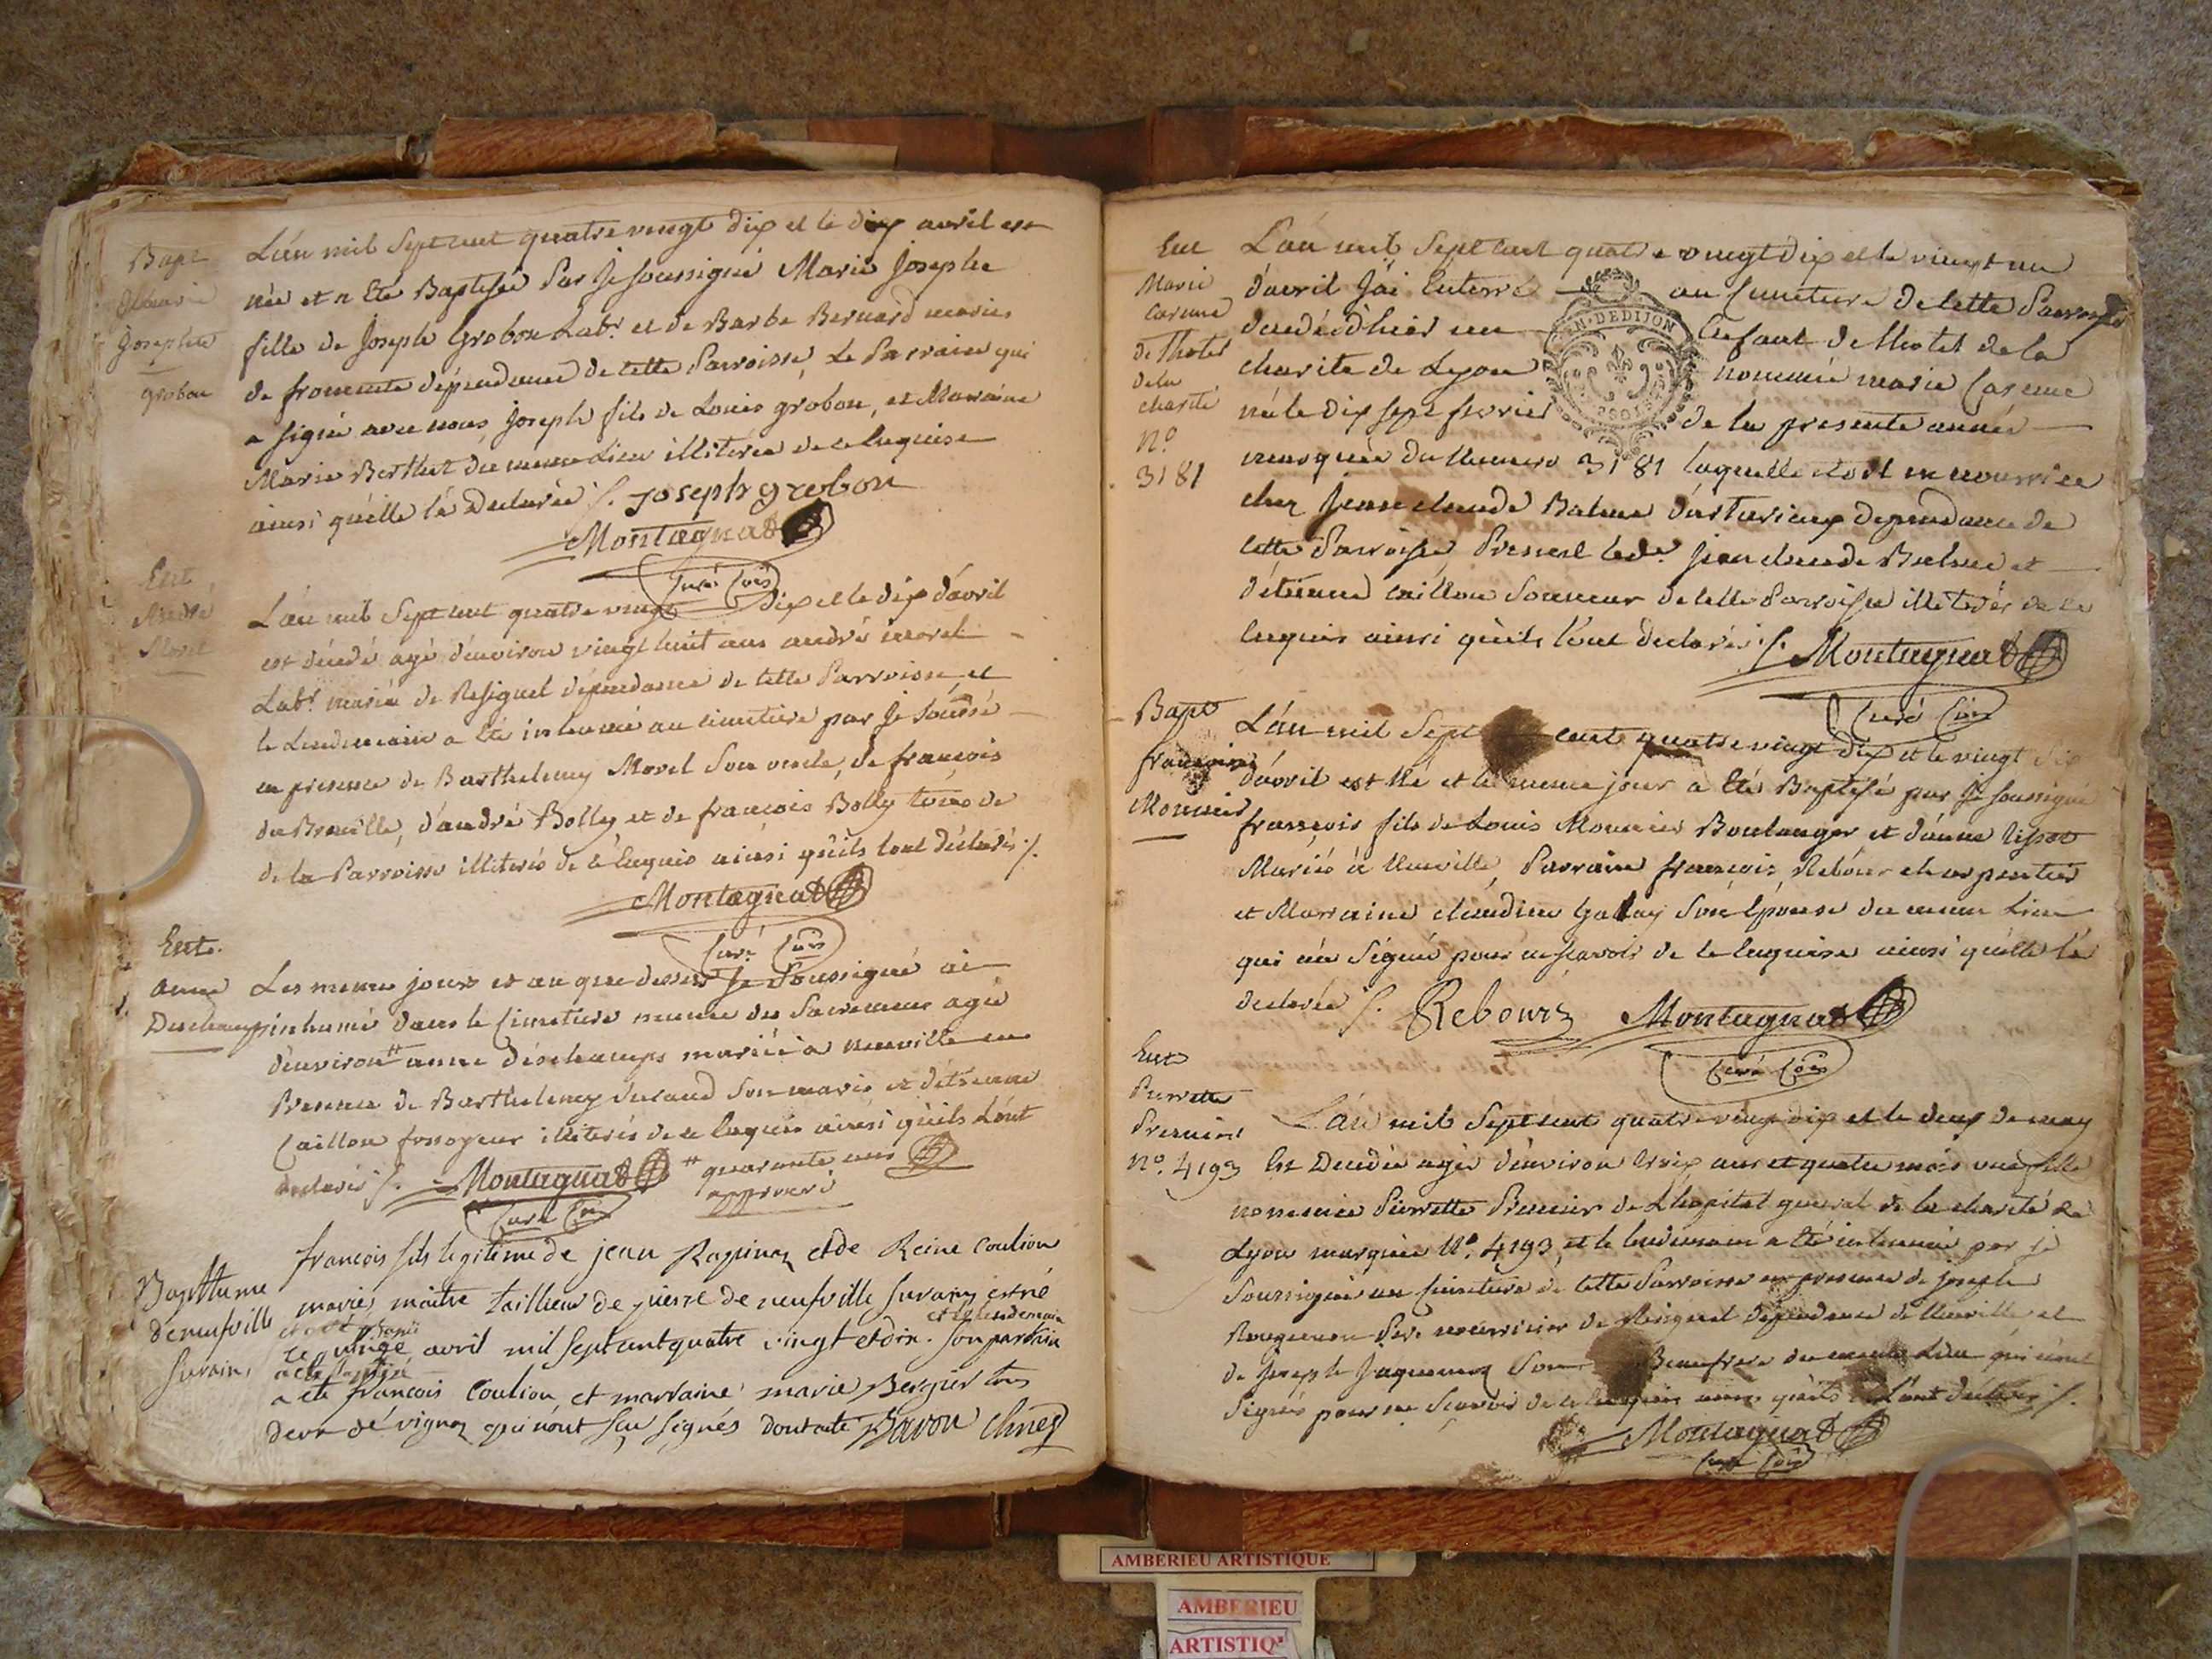 Bapt
Marie
Josephte
grobon
L'an mil Sept cent quatre vingt dix et le dix avril est
née et a été Baptisée Par Je soussigné Marie Josephte
fille de Joseph Grobon Labr. et de Barbe Bernard mariés
de fromente dépendance de cette Parroisse, Le Parrain qui
a signé avec nous Joseph fils de Louis grobon, et Marraine
Marie Berthet du meme Lieu illiterée de ce enquise
ainsi qu'elle l'a Declarée /. Joseph grobon
Montagnat
Curé
Ent
André
Morel
L'an mil Sept cent quatre vingt dix et le dix d'avril
est décédé agé d'environ vingt huit ans andré morel
Labr. marié de Resignel dépendance de cette Parroisse, et
le Lendemain a été inhumé au cimetiere par Je soussé
en presence de Barthelemy Morel Son oncle, de françois
du Breuille, d'andré Bolley et de françois Bolley tous de
de la Parroisse illiterés de ce Enquis ainsi qu'ils l'ont déclarés /.
Montagnat
Curé
Ent.
anne
Deschamps
Les meme jours et an que dessus Je Soussigné ai
inhumé dans le Cimetiere munie des Sacremens agée
d'environ # anne déschamps mariée a neuville en
Presence de Barthelemy Durand Son mari et d'étienne
Caillon fossoyeur illiterés de ce enquis ainsi qu'ils L'ont
declarés /. Montagnat # quarante ans
approuvé
Curé
Bapttume
deneufville
Surain,
francois fils legitime de jean Rapinoz et de Reine Coulion
mariés maitre taillieur de pierre de neufville Surain est né
et le lendemain
le quinze avril mil sept cent quatre vingt et dix. Son parrain
a eté baptisé
a eté francois Coulion, et marraine marie Bergier tous
deux de vignoz qui n'ont sçu signés dont acte Savon
Ent
Marie
Careme
de l'hotel
de la
charité
no.
3181
L'an mil Sept cent quatre vingt dix et le vingt un
d'avril J'ai Enterré au cimetiere de cette Parroisse
decedé d'hier un Enfant de l'hotel de la
charité de Lyon nommée marie Careme
née le dix sept fevrier de la presente année
marquée du Numero 3181 laquelle étoit en nourrice
chez Jean claude Balme dependance de
cette Parroisse, Present led. Jean claude Balme et
d'étienne caillon Sonneur de cette Parroisse illiterés de ce
Enquis ainsi qu'ils l'ont declarés /. Montagnat
Curé
GN. DE DIJON
Bapt
françois
Monnier
L'an mil Sept cent quatre vingt dix et le vingt
d'avril est né et le meme jour a été Baptisé par Je soussigné
françois fils de Louis Monnier Boulanger et d'anne
Mariés à Neuville, Parrain françois Rebour charpentier
et Marraine claudine Gallay Son épouse du meme Lieu
qui n'a Signé pour ne sçavoir de ce enquise ainsi qu'elle l'a
declarée /. Rebours Montagnat
Curé
Ent
Pierrette
Premier
No. 4193
L'an mil Sept cent quatre vingt dix et le deux de may
Est Decedée agée d'environ six ans et quatre mois une fille
nommée Pierrette Premier de L'hopital general de la charité de
Lyon marquée No. 4193, et le lendemain a été inhumée par je
Soussigné au cimetiere de cette Parroisse en presence de Joseph
pere nourricier de Resignel dependance de Neuville, et
de Joseph Jaquemoz Son Beaufrere du meme Lieu qui n'ont
Signés pour ne Sçavoir de ce Enquis ainsi qu'ils L'ont declarés /.
Montagnat
Curé
AMBERIEU ARTISTIQUE
AMBERIEU
ARTISTIQ